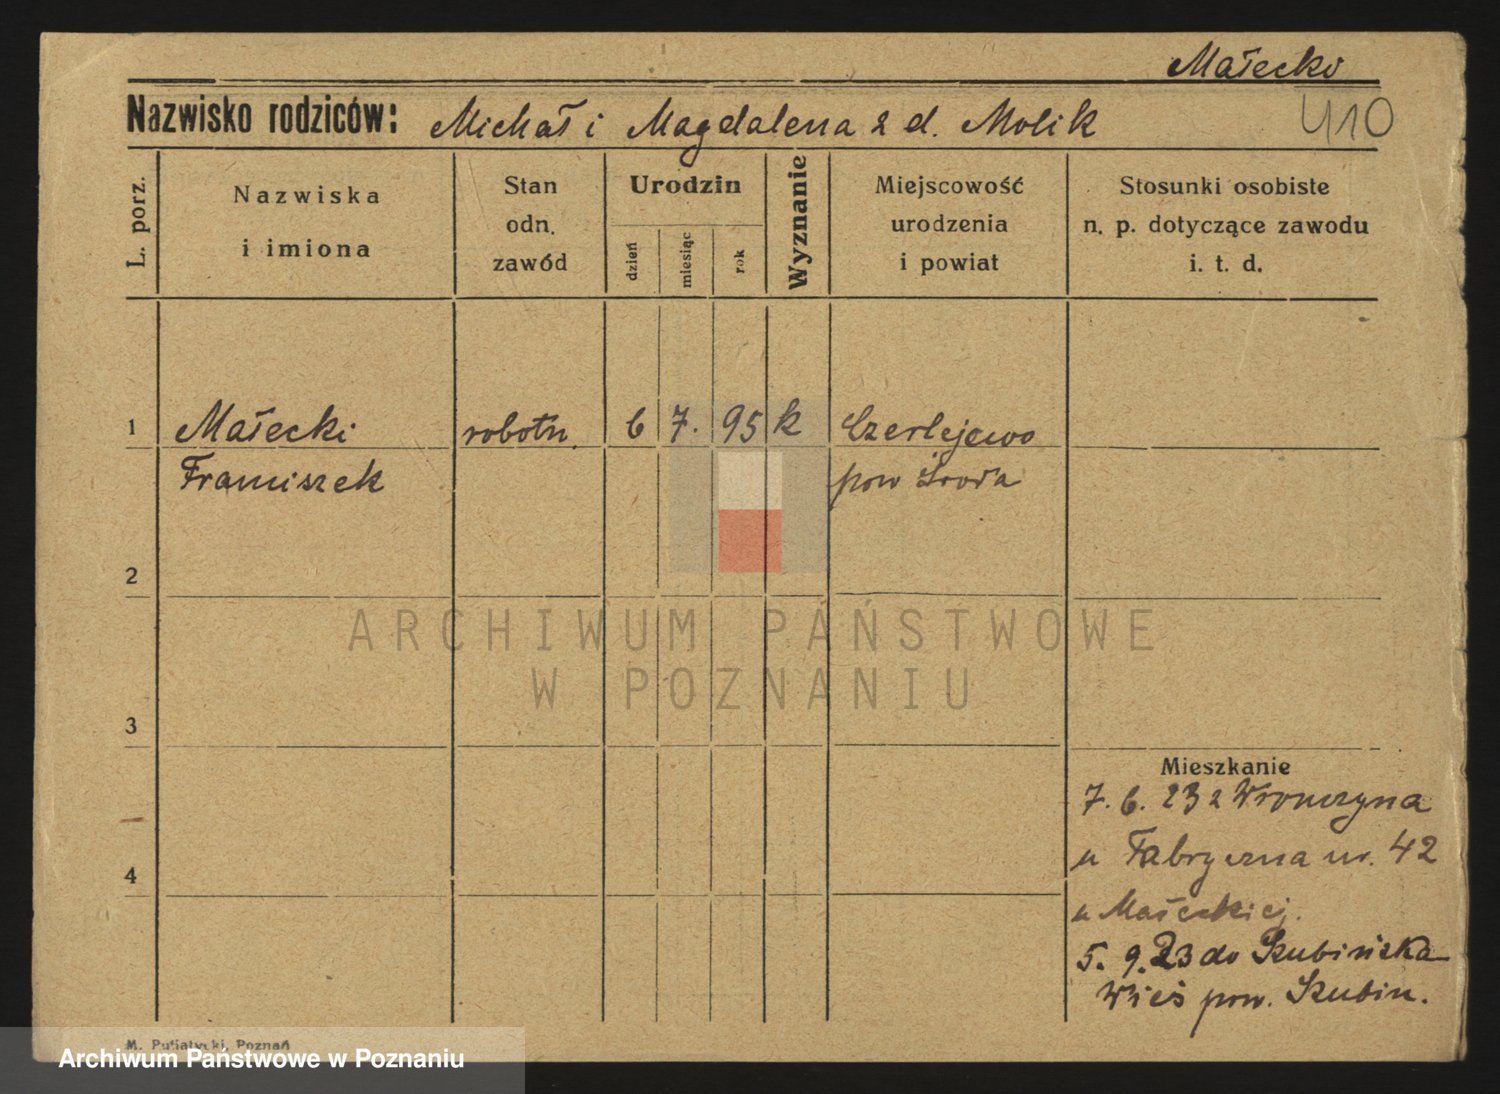 Małecki
Nazwisko rodziców: Michał i Magdalena z d. Molik
410
L. porz.
Nazwiska
i imiona
Stan
odn.
zawód
Urodzin
dzień
miesiąc
rok
Wyznanie
Miejscowość
urodzenia
i powiat
Stosunki osobiste
n. p. dotyczące zawodu
i. t. d.
1 Małecki robotn. 6 7. 95 k Czerlejewo
Franciszek pow Środa
2
ARCHIWUM PAŃSTWOWE
W POZNANIU
3
Mieszkanie
7. 6. 23 z Wronczyna
4
u Fabryczna nr. 42
u Małeckiej.
5. 9. 23 do Szubińska
Wieś pow. Szubin.
M. Putiatycki, Poznań
Archiwum Państwowe w Poznaniu